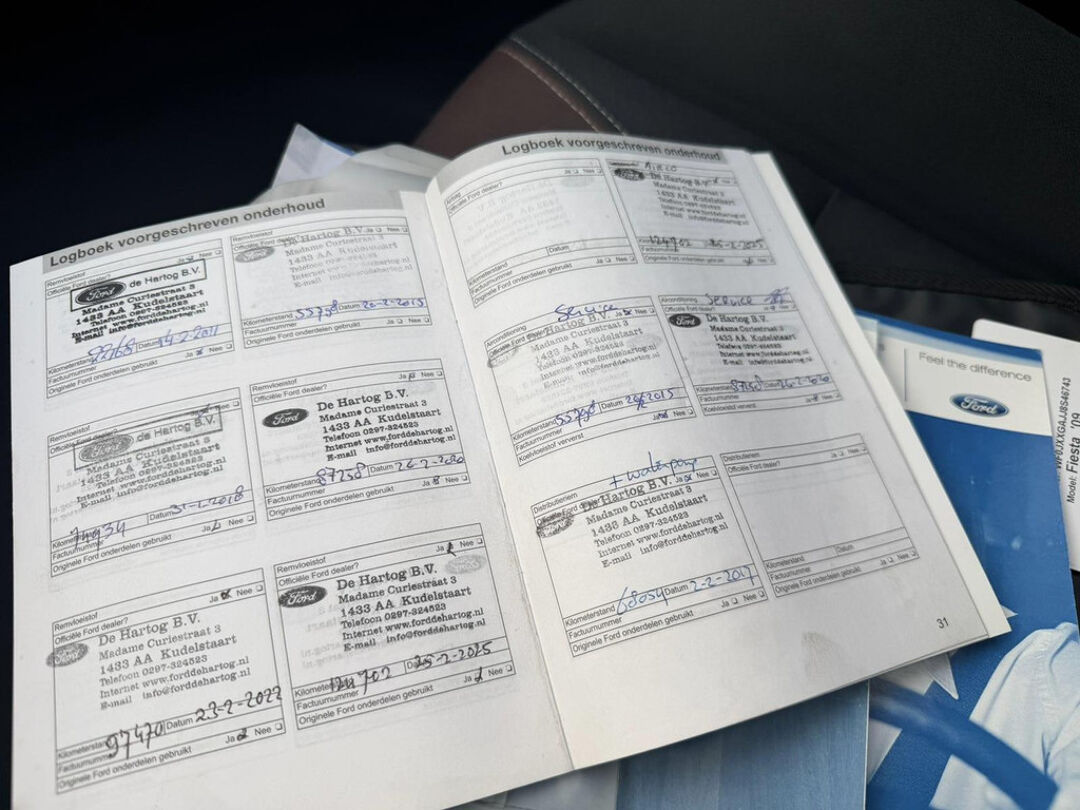 Logboek voorgeschreven onderhoud
Remvloeistof
Officiële Ford dealer? Ja Nee
Ford de Hartog B.V.
Madame Curiestraat 3
1433 AA Kudelstaart
Telefoon 0297-324523
Internet www.forddehartog.nl
E-mail info@forddehartog.nl
Kilometerstand Datum
Factuurnummer
Originele Ford onderdelen gebruikt Ja Nee
Remvloeistof
Officiële Ford dealer? Ja Nee
Ford De Hartog B.V.
Madame Curiestraat 3
1433 AA Kudelstaart
Telefoon 0297-324523
Internet www.forddehartog.nl
E-mail info@forddehartog.nl
Kilometerstand 55798 Datum 20-2-2015
Factuurnummer
Originele Ford onderdelen gebruikt Ja Nee
Remvloeistof
Ford de Hartog B.V.
Madame Curiestraat 3
1433 AA Kudelstaart
Telefoon 0297-324523
Internet www.forddehartog.nl
E-mail info@forddehartog.nl
74934 Datum 31-1-2018
Factuurnummer
Originele Ford onderdelen gebruikt Ja Nee
Remvloeistof
Officiële Ford dealer? Ja Nee
Ford De Hartog B.V.
Madame Curiestraat 3
1433 AA Kudelstaart
Telefoon 0297-324523
Internet www.forddehartog.nl
E-mail info@forddehartog.nl
Kilometerstand 87258 Datum 26-2-2020
Factuurnummer
Originele Ford onderdelen gebruikt Ja Nee
Remvloeistof
Officiële Ford dealer? Ja Nee
Ford De Hartog B.V.
Madame Curiestraat 3
1433 AA Kudelstaart
Telefoon 0297-324523
Internet www.forddehartog.nl
E-mail info@forddehartog.nl
Kilometerstand 97470 Datum 23-2-2022
Factuurnummer
Originele Ford onderdelen gebruikt Ja Nee
Remvloeistof
Officiële Ford dealer? Ja Nee
Ford De Hartog B.V.
Madame Curiestraat 3
1433 AA Kudelstaart
Telefoon 0297-324523
Internet www.forddehartog.nl
E-mail info@forddehartog.nl
124702 Datum 25-2-2025
Factuurnummer
Originele Ford onderdelen gebruikt Ja Nee
Logboek voorgeschreven onderhoud
Officiële Ford dealer? Ja Nee
Kilometerstand Datum
Factuurnummer
Originele Ford onderdelen gebruikt Ja Nee
AIRCO
Ford De Hartog B.V.
Madame Curiestraat 3
1433 AA Kudelstaart
Telefoon 0297-324523
Internet www.forddehartog.nl
E-mail info@forddehartog.nl
124702 2025
Factuurnummer
Originele Ford onderdelen gebruikt Nee
Airconditioning Service
Officiële Ford dealer? Ja Nee
De Hartog B.V.
Madame Curiestraat 3
1433 AA Kudelstaart
Telefoon 0297-324523
Internet www.forddehartog.nl
E-mail info@forddehartog.nl
Kilometerstand 55798 Datum
Factuurnummer Ja Nee
Koelvloeistof ververst
Airconditioning Service
Ford De Hartog B.V.
Madame Curiestraat 3
1433 AA Kudelstaart
Telefoon 0297-324523
Internet www.forddehartog.nl
E-mail info@forddehartog.nl
Kilometerstand Datum 26-2-2020
Factuurnummer Ja Nee
Koelvloeistof ververst
+ waterpomp
Distributieriem
Officiële Ford dealer? Ja Nee
De Hartog B.V.
Madame Curiestraat 3
1433 AA Kudelstaart
Telefoon 0297-324523
Internet www.forddehartog.nl
E-mail info@forddehartog.nl
Kilometerstand 68054 Datum 2-2-2017
Factuurnummer
Originele Ford onderdelen gebruikt Ja Nee
Distributieriem
Officiële Ford dealer? Ja Nee
Kilometerstand Datum
Factuurnummer
Originele Ford onderdelen gebruikt Ja Nee
31
Feel the difference
Ford
WF0JXXGAJJ8S46743
Model: Fiesta '09